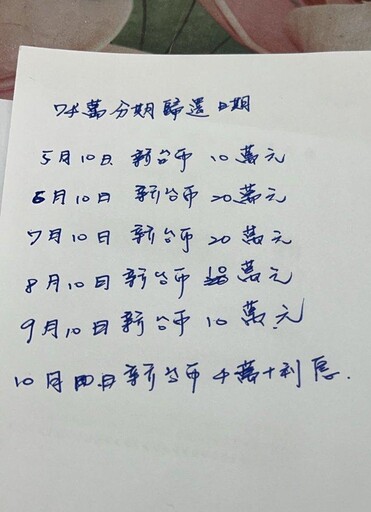 74萬分期歸還日期
5月10日 新台币 10萬元
6月10日 新台币 20萬元
7月10日 新台币 20萬元
8月10日 新台币 萬元
9月10日 新台币 10萬元
10月 日 新台币 4萬+利息.